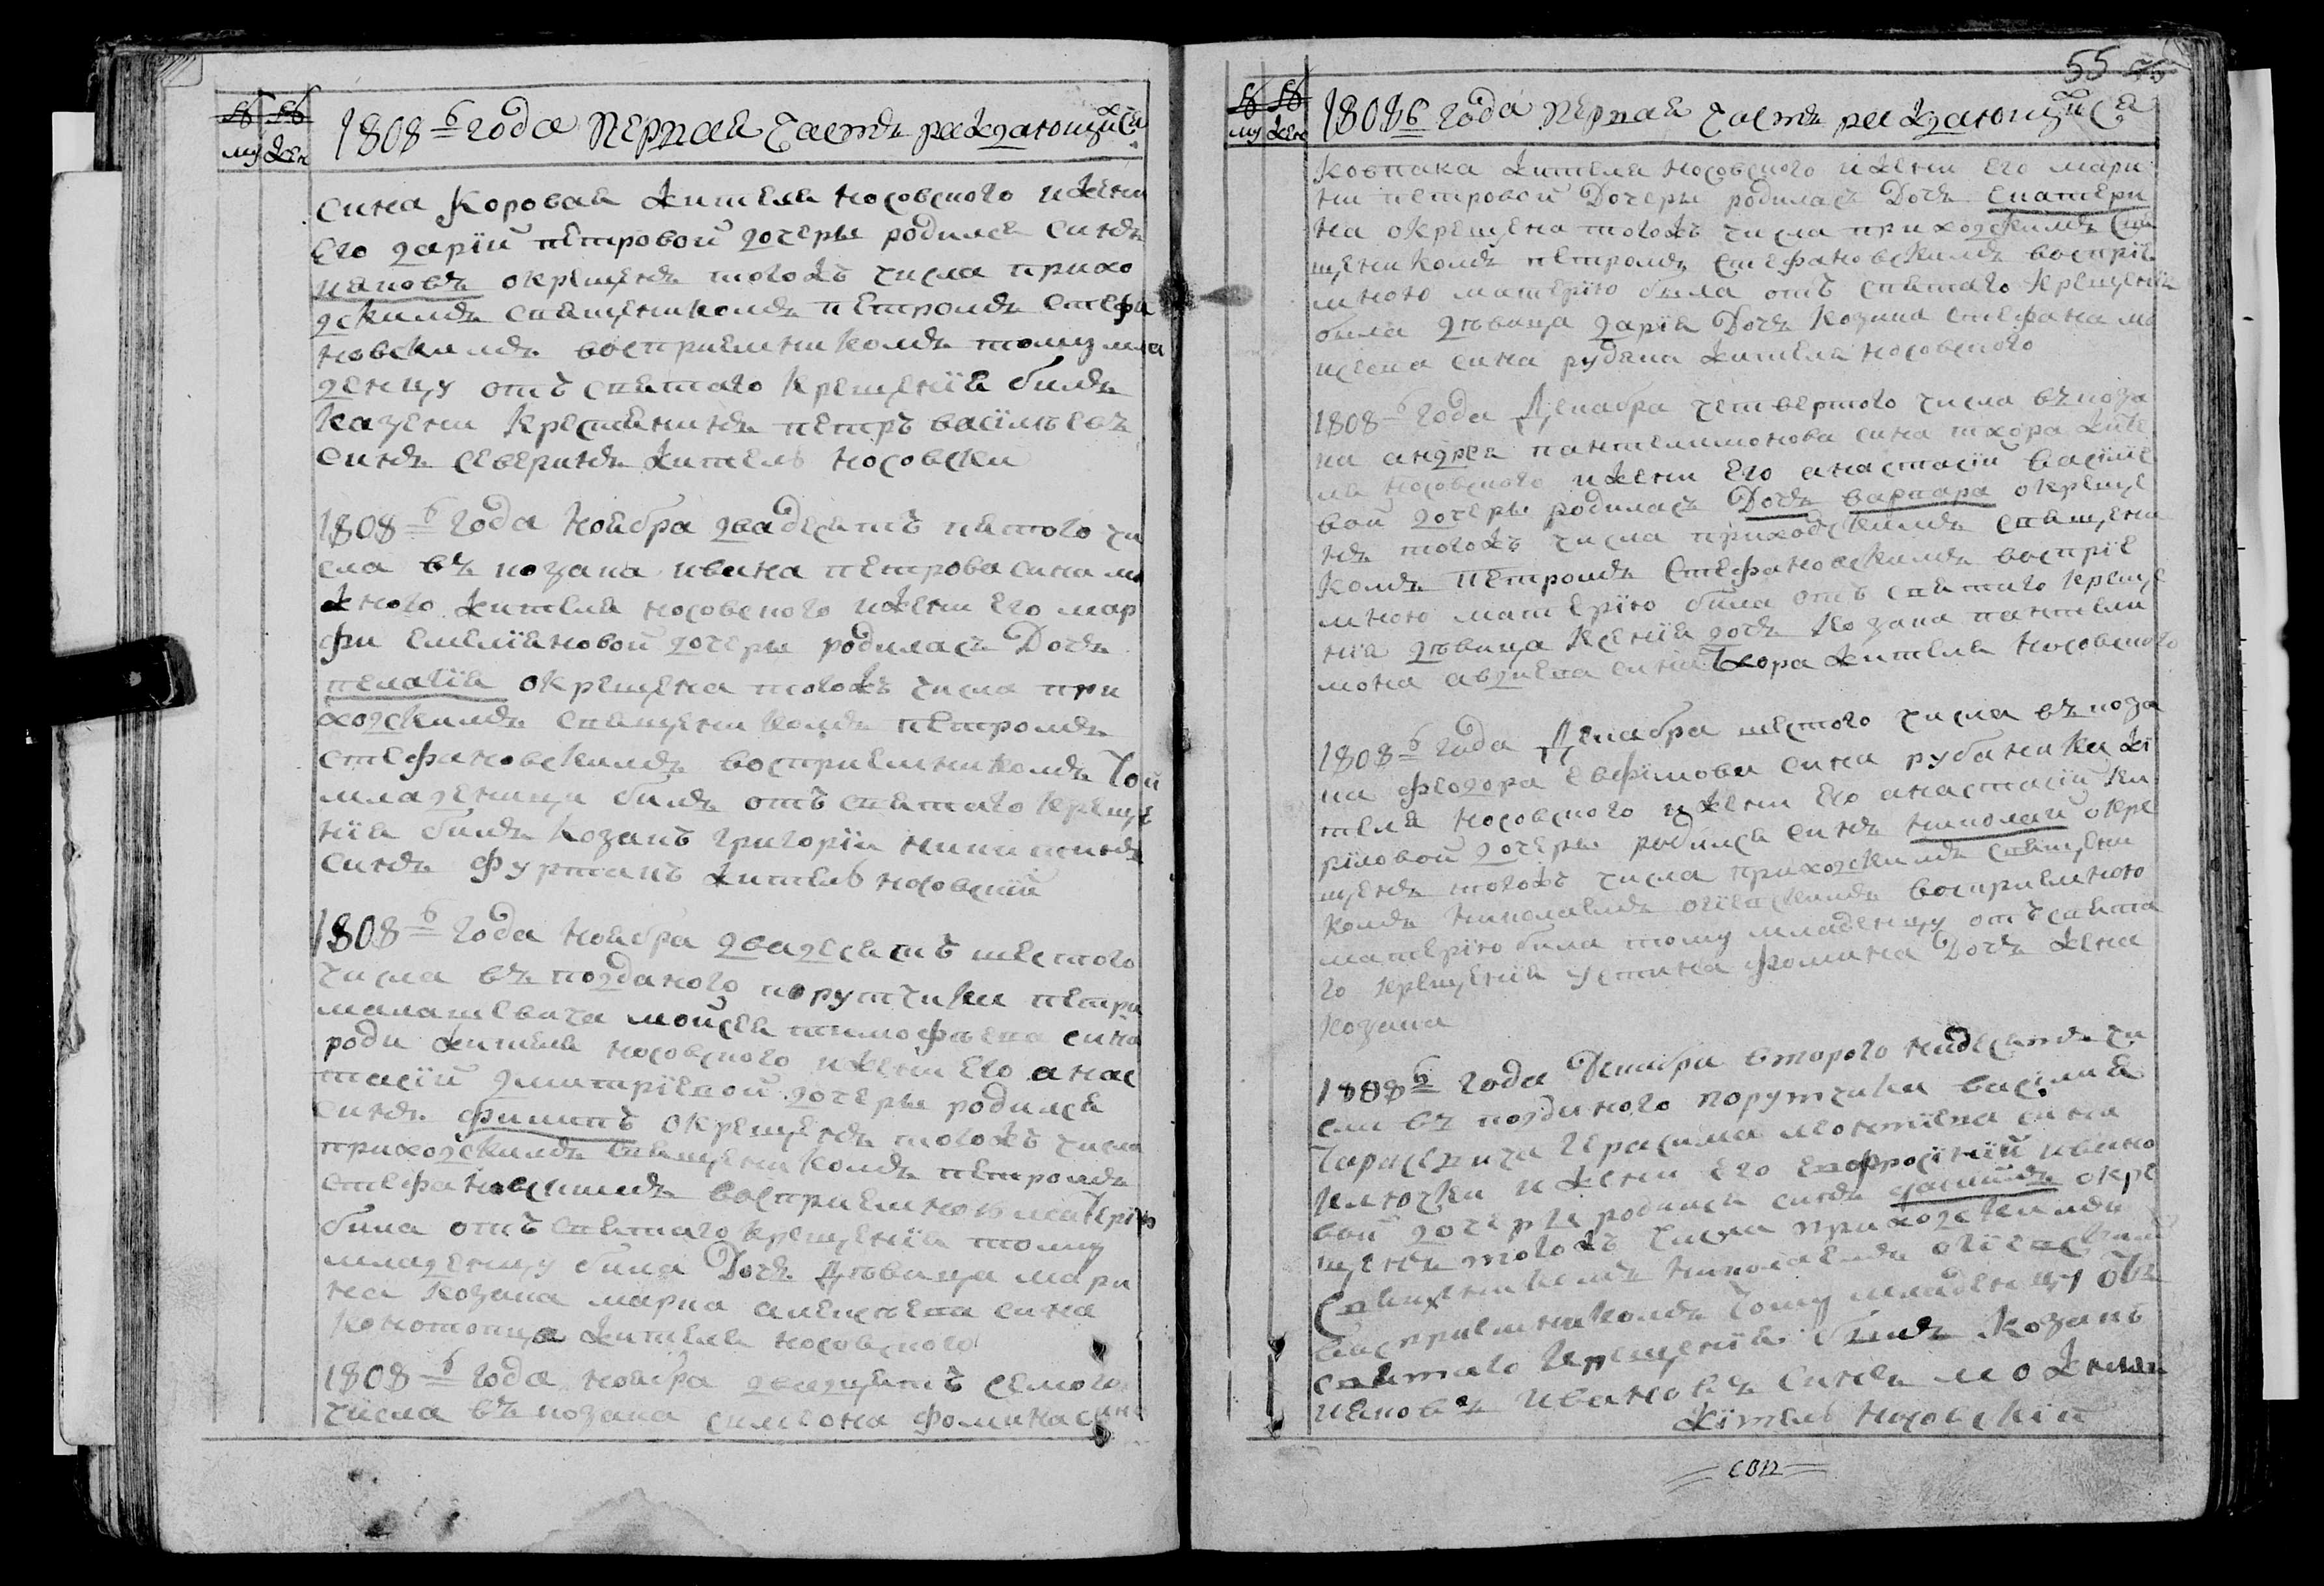 му жен
1808 б года первая часть раждающийся
сина Коровая жителя носовского и жени
его дарїи петровой дочеры родился синъ
яковъ окрещенъ тогожъ числа прихо
дскимъ священикомъ петромъ стефа
новскимъ восприемникомъ тому мла
денцу отъ святаго крещенїя билъ
казени крестянинъ петръ василъевъ
синъ северинъ житель носовски
1808 б года ноября двадесятъ пятого чи
сла въ козака ивана петрова сина мо
жного жителя носовского и жени его мар
фи емелїяновой дочеры родиласъ дочъ
пелагїя окрещена тогожъ числа при
ходскимъ священикомъ петромъ
стефановскимъ восприемникомъ той
младеници билъ отъ святаго креще
нїя билъ козакъ григорїи
синъ фурманъ житель носовскїй
1808 б года ноября двадесятъ шестого
числа въ подданого поручика петра
малашевича мойсея тимофѣева сина
роди жителя носовского и жени его анас
тасїи дмитрїевой дочеры родился
синъ филипъ окрещенъ тогожъ числа
приходскимъ священикомъ петромъ
стефановскимъ восприемною матерїю
била отъ святаго крещенїя тому
младенцу била дочъ дѣвица мари
на козака марка алексѣева сина
конотопца жителя носовского
1808 б года ноября двадцятъ семого
числа въ козака симеона фомина сина
55
му жен
1808 б года первая часть раждающийся
ковпака жителя носовского и жени его мари
ни петровой дочеры родиласъ дочъ екатери
на окрещена тогожъ числа приходскимъ свя
щеникомъ петромъ стефановскимъ восприе
мною матерїю била отъ святаго крещенїя
била дѣвица дарїя дочъ козака стефана мо
исеева сина рудяка жителя носовского
1808 б года декабра четвертого числа въ коза
ка андрея пантелимонова сина тхора жите
ля носовского и жени его анастасїи василе
вой дочеры родиласъ дочъ варвара окреще
нъ тогожъ числа приходскимъ священи
комъ петромъ стефановскимъ восприе
мною матерїю била отъ святаго креще
нїя дѣвица ксенїя дочъ козака пантели
мона авдиева сина тхора жителя носовского
1808 б года декабра шестого числа въ коза
ка феодора евфїмова сина рубаника жи
теля носовского и жени его анастасїи ки
рїловой дочеры родился синъ николай окре
щенъ тогожъ числа приходскимъ священи
комъ николаемъ огїевскимъ восприемною
матерїю била тому младенцу отъ свята
го крещенїя устина фомина дочъ жена
козака
1808 б года декабра второго надесятъ чи
сла въ подданого поручика василия
тарасевича герасима леонтїева сина
ключки и жени его евфросїнїи ивано
вой дочеры родился синъ данїилъ окре
щенъ тогожъ числа приходскимъ
священикомъ николаемъ огїевским
восприемникомъ тому младенцу отъ
святаго крещенїя билъ козакъ
яковъ ивановъ синъ можний
жїтель носовскїй